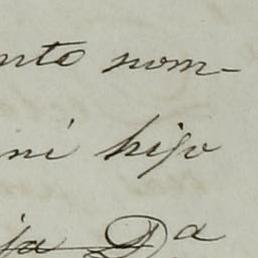 nto nom-
mi hijo
ja Da